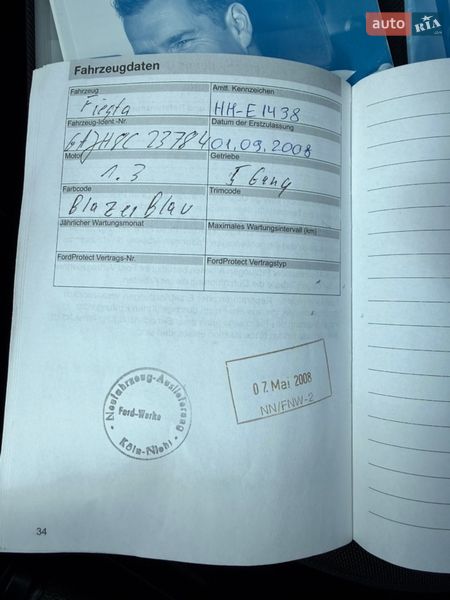 auto RIA .com
Fahrzeugdaten
Fahrzeug
Fiesta
Amtl. Kennzeichen
HH-E1438
Fahrzeug-Ident.-Nr.
23784
Datum der Erstzulassung
01.09.2008
Motor
1.3
Getriebe
5 Gang
Farbcode
Blazer Blau
Trimcode
Jährlicher Wartungsmonat
Maximales Wartungsintervall (km)
FordProtect Vertrags-Nr.
FordProtect Vertragstyp
Neufahrzeug-Auslieferung
Ford-Werke
Köln-Niehl
07 Mai 2008
NN/FNW-2
34